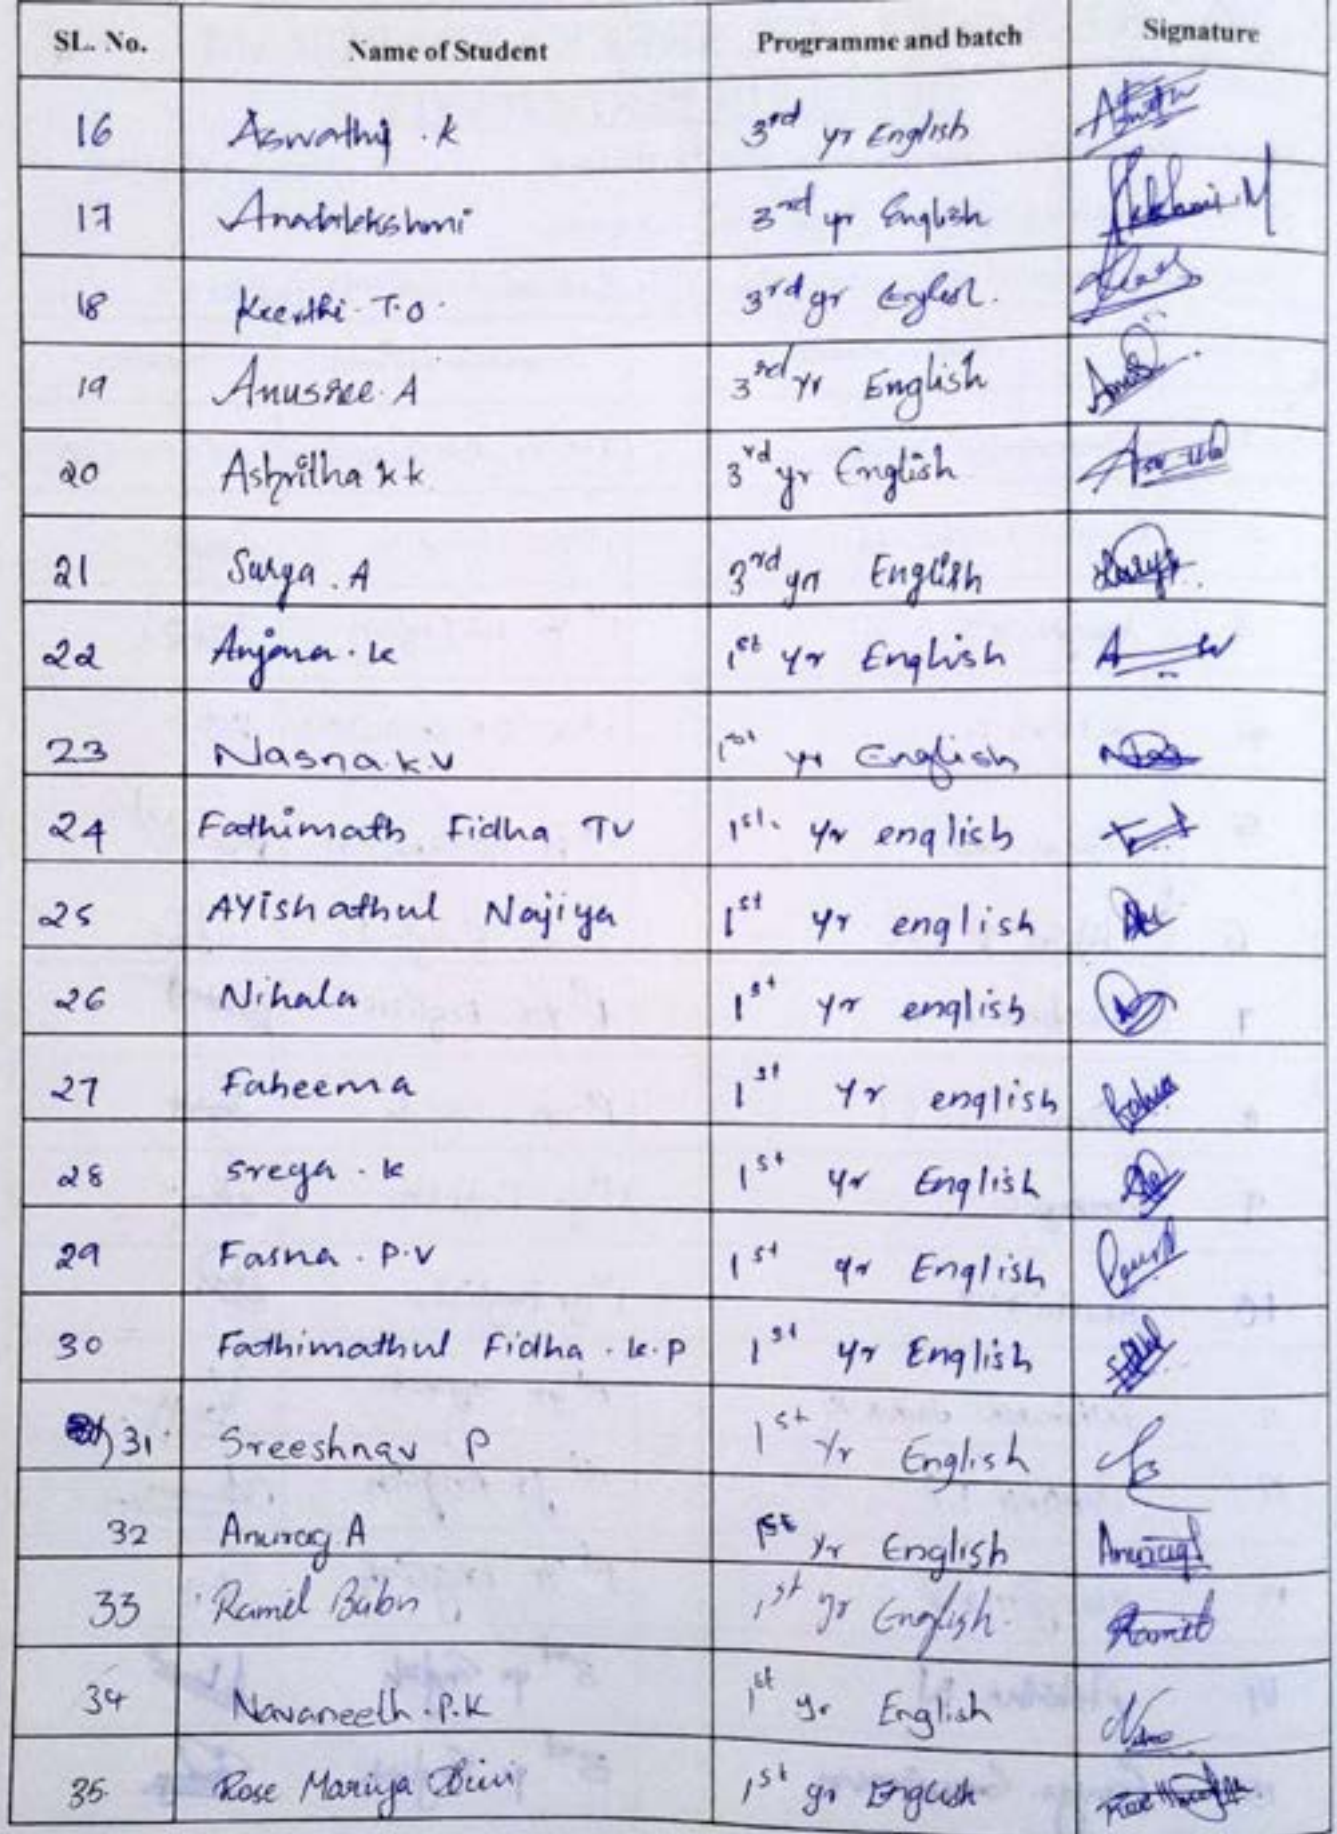 SL. No. Name of Student Programme and batch Signature
16 Aswathy . K 3rd yr English
17 3rd yr English
18 Keerthi. T.O. 3rd yr English.
19 Anusree. A 3rd yr English
20 Ashritha k k. 3rd yr English
21 Surya . A 3rd yr English Surya.
22 Anjana . k 1st yr English
23 Nasna k.v 1st yr English
24 Fathimath Fidha TV 1st. yr english
25 AYishathul Najiya 1st yr english
26 Nihala 1st yr english
27 Faheema 1st yr english
28 sreya . k 1st yr English
29 Fasna . P.V 1st yr English
30 Fathimathul Fidha . k.p 1st yr English
31 Sreeshnav P 1st yr English
32 Anurag A 1st yr English Anurag
33 Ramil Babu 1st yr English. Ramil
34 Navaneeth . P.K 1st yr English
35. Rose Mariya 1st yr English